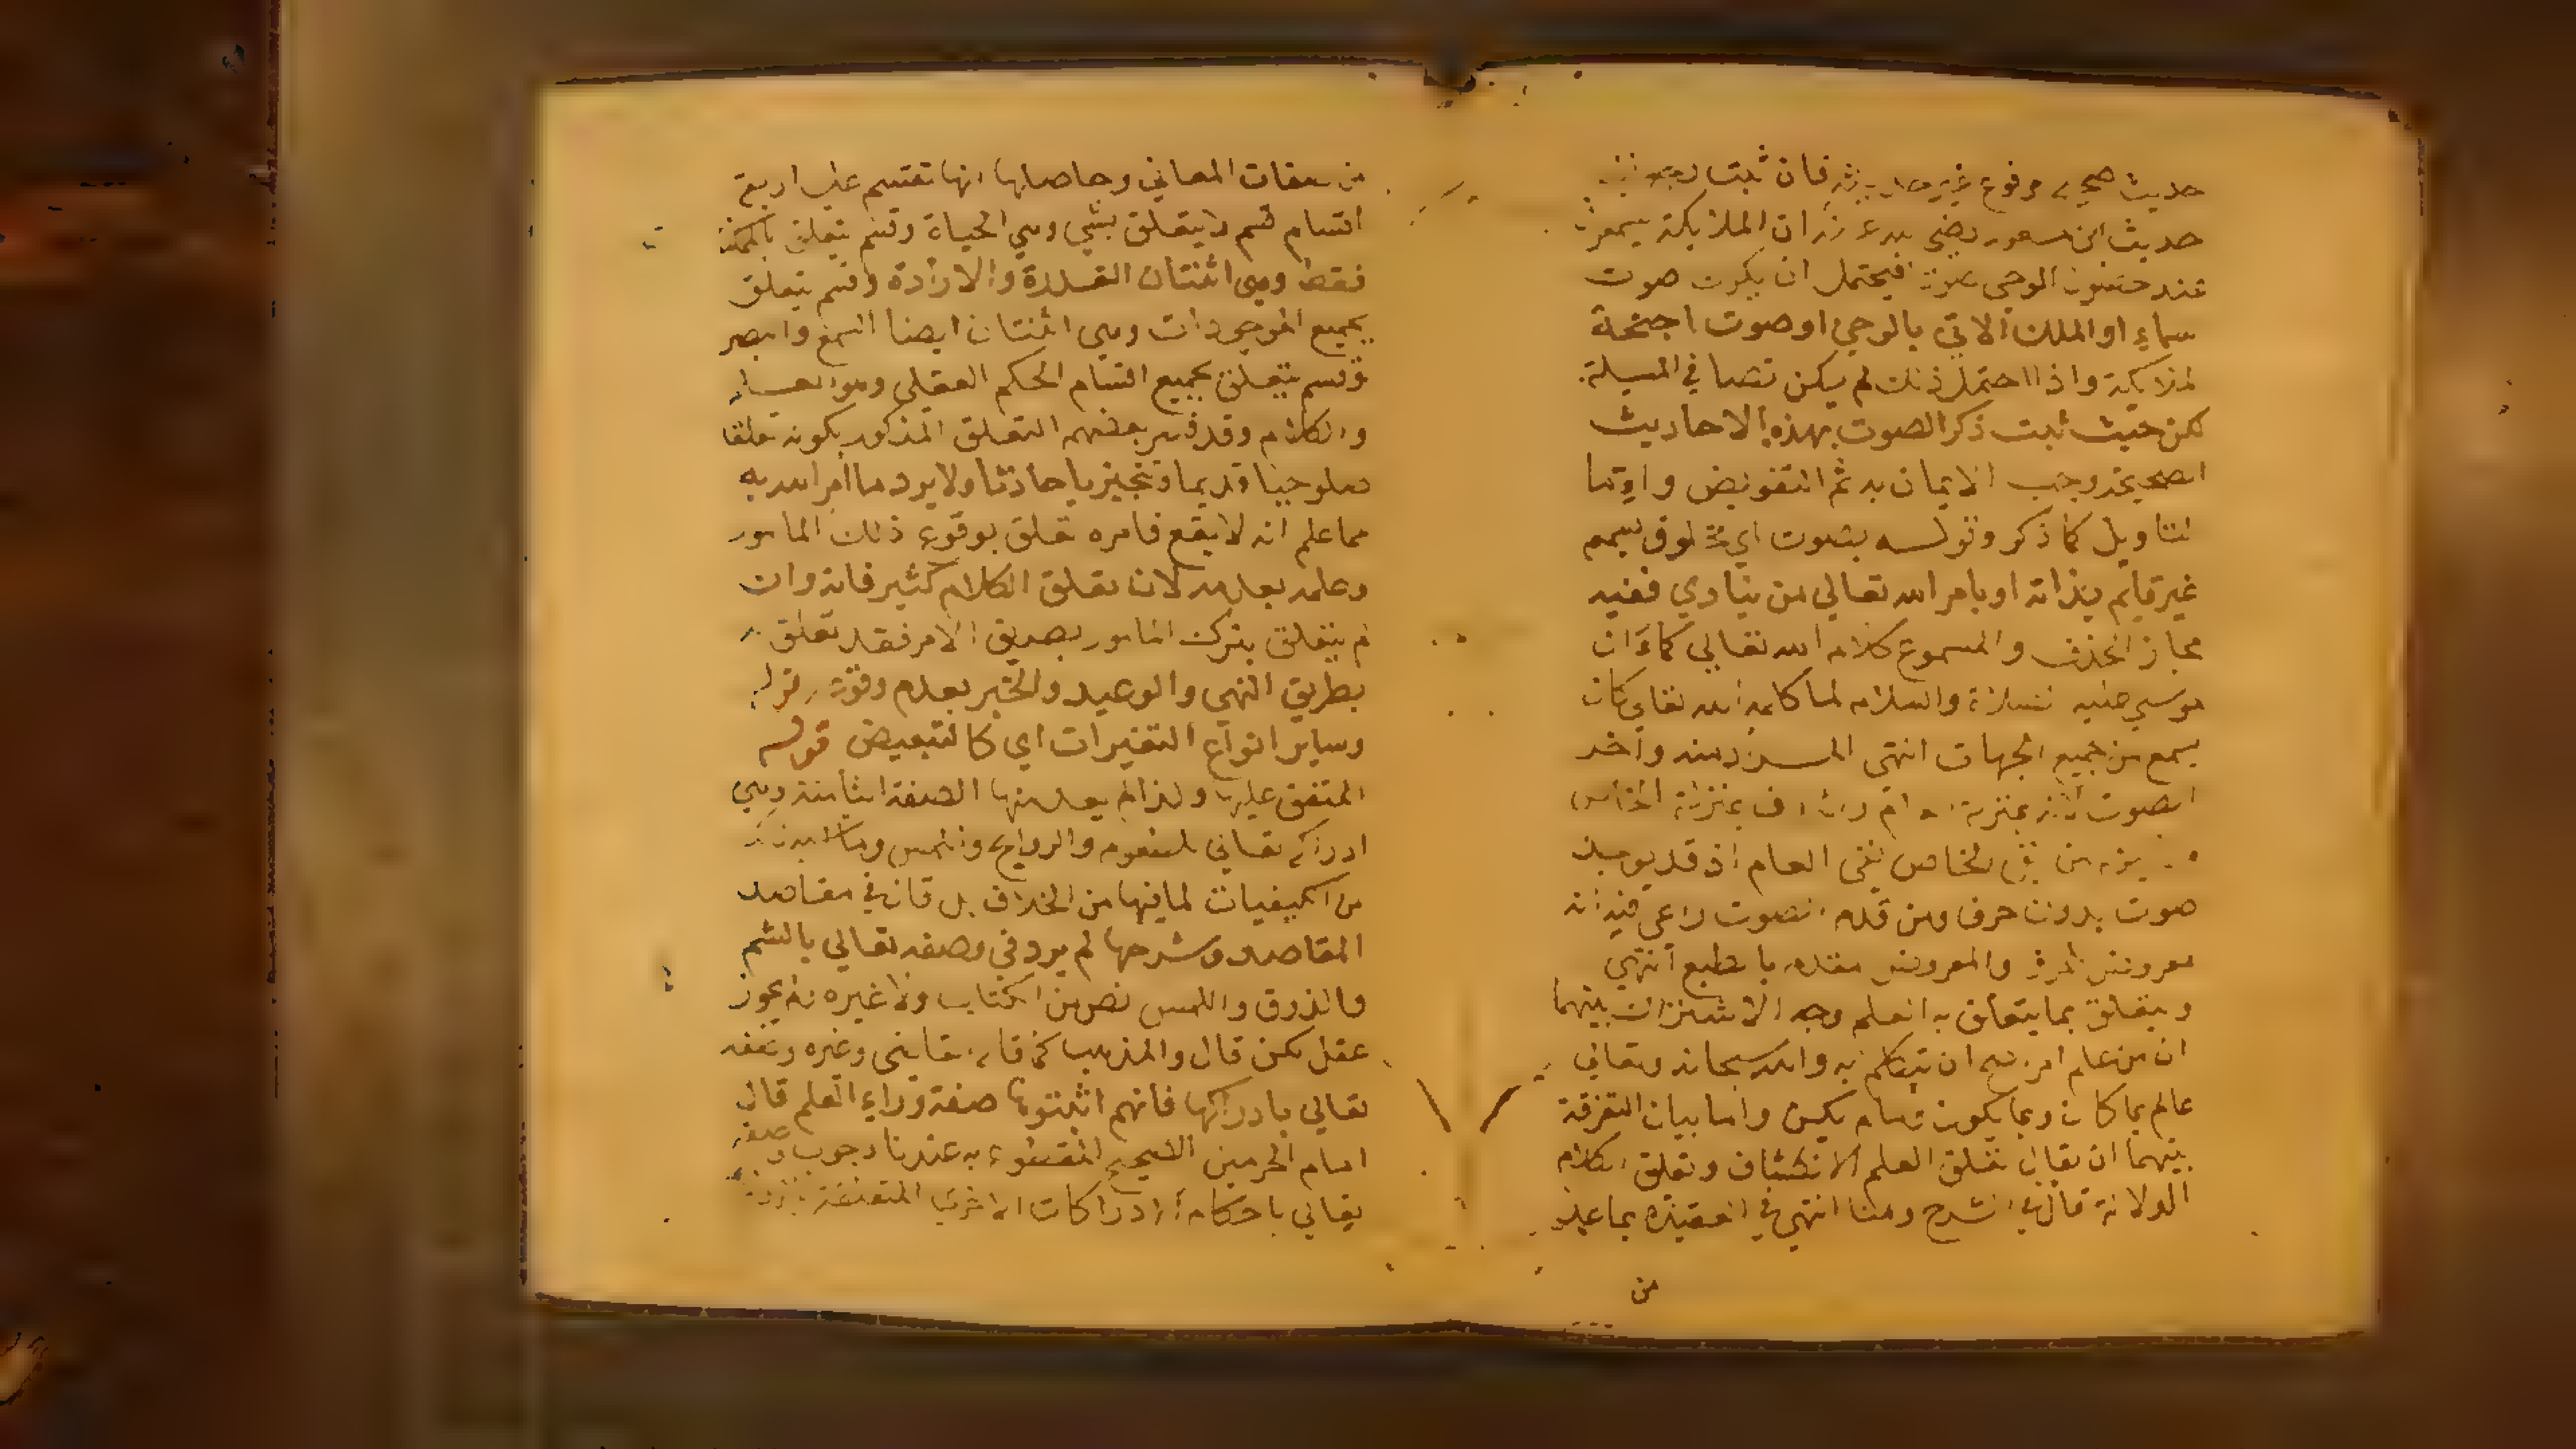 حديث صحيح مرفوع غير حديثه فان ثبت رجع
حديث ابن مسعود رضي الله عنه ان الملايكة يسمعون
عند حضور الوحي صوتا فيحتمل ان يكون صوت
سماء او الملك الاتي بالوحي او صوت اجنحة
لملايكة واذا احتمل ذلك لم يكن نصا في المسيلة
لكن حيث ثبت ذكر الصوت بهذه الاحاديث
الصحيحة وجب الايمان به ثم التفويض واما
لتاويل كما ذكر وقوله بصوت اي مخلوق يسمع
غير قايم بذاته او بامر الله تعالي من ينادي ففيه
مجاز الحذف والمسموع كلام الله تعالي كما ان
موسي عليه الصلاة والسلام لما كلمه الله تعالي كان
يسمع من جميع الجهات انتهي المراد منه واخذ
الصوت بمنزلة العام والحرف بمنزلة الخاص
يلزم من نفي الخاص نفي العام اذ قد يوجد
صوت بدون حرف ومن قدم الصوت راعي فيه انه
معروض الحرف والمعروض مقدم بالطبع انتهي
ويتعلق بما يتعلق به العلم وجه الاشتراك بينهما
ان من علم امرا صح ان يتكلم به والله سبحانه وتعالي
عالم بما كان وبما يكون وما لم يكن واما بيان التفرقة
بينهما ان يقال تعلق العلم الانكشاف وتعلق الكلام
الدلالة قال في الشرح وهنا انتهي في العقيدة بما عليه
من
من صفات المعاني وحاصلها انها تنقسم علي اربعة
اقسام قسم لا يتعلق بشي وهي الحياة وقسم يتعلق بالممكنا
فقط وهي اثنتان القدرة والارادة وقسم يتعلق
بجميع الموجودات وهي اثنتان ايضا السمع والبصر
وقسم يتعلق بجميع اقسام الحكم العقلي وهو العلم
والكلام وقد فسر بعضهم التعلق المذكور بكونه تعلقا
صلوحيا قديما وتنجيزيا حادثا ولا يرد ما امر الله به
مما علم انه لا يقع فامره تعلق بوقوع ذلك المامور
وعلمه بعدمه لان تعلق الكلام كثير فانه وان
لم يتعلق بترك المامور بطريق الامر فقد تعلق به
بطريق النهي والوعيد والخبر بعدم وقوعه قوله
وساير انواع التغيرات اي كالتبعيض قوله
المتفق عليها ولذا لم يعد منها الصفة الثامنة وهي
ادراكه تعالي للطعوم والروايح واللمس وما
من الكيفيات لما فيها من الخلاف بل قال في مقاصد
المقاصد وشرحها لم يرد في وصفه تعالي بالشم
والذوق واللمس نص من الكتاب ولا غيره فلا يجوز
عقل لكن قال والمذهب كما قاله القاضي وغيره وصفه
تعالي بادراكها فانهم اثبتوها صفة وراء العلم قال
امام الحرمين الصحيح المقطوع به عندنا وجوب وصفه
تعالي باحكام الادراكات الاخري المتعلقة